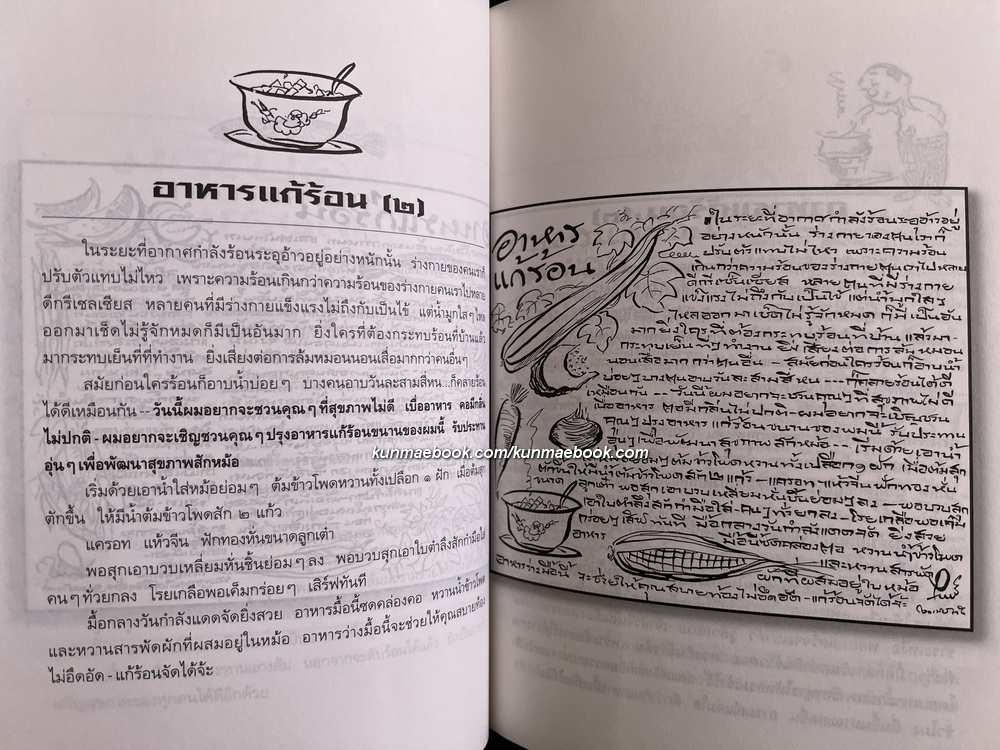 อาหารแก้ร้อน (๒)
ในระยะที่อากาศกำลังร้อนระอุอ้าวอยู่อย่างหนักนั้น ร่างกายของคนเราก็
ปรับตัวแทบไม่ไหว เพราะความร้อนเกินกว่าความร้อนของร่างกายคนเราไปหลาย
ดีกรีเซลเซียส หลายคนที่มีร่างกายแข็งแรงไม่ถึงกับเป็นไข้ แต่น้ำมูกใสๆ ไหล
ออกมาเช็ดไม่รู้จักหมดก็มีเป็นอันมาก ยิ่งใครที่ต้องกระทบร้อนที่บ้านแล้ว
มากระทบเย็นที่ที่ทำงาน ยิ่งเสี่ยงต่อการล้มหมอนนอนเสื่อมากกว่าคนอื่นๆ
สมัยก่อนใครร้อนก็อาบน้ำบ่อยๆ บางคนอาบวันละสามสี่หน...ก็คลายร้อน
ได้ดีเหมือนกัน -- วันนี้ผมอยากจะชวนคุณๆ ที่สุขภาพไม่ดี เบื่ออาหาร คอมีกลิ่น
ไม่ปกติ - ผมอยากจะเชิญชวนคุณๆ ปรุงอาหารแก้ร้อนขนานของผมนี้ รับประทาน
อุ่นๆ เพื่อพัฒนาสุขภาพสักหม้อ
เริ่มด้วยเอาน้ำใส่หม้อย่อมๆ ต้มข้าวโพดหวานทั้งเปลือก ๑ ฝัก เมื่อต้มสุก
ตักขึ้น ให้มีน้ำต้มข้าวโพดสัก ๒ แก้ว
แครอท แห้วจีน ฟักทองหั่นขนาดลูกเต๋า
พอสุกเอาบวบเหลี่ยมหั่นชิ้นย่อมๆ ลง พอบวบสุกเอาใบตำลึงสักกำมือใส่
คนๆ ทั่วยกลง โรยเกลือพอเค็มกร่อยๆ เสิร์ฟทันที
มื้อกลางวันกำลังแดดจัดยิ่งสวย อาหารมื้อนี้ซดคล่องคอ หวานน้ำข้าวโพด
และหวานสารพัดผักที่ผสมอยู่ในหม้อ อาหารว่างมื้อนี้จะช่วยให้คุณสบายท้อง
ไม่อึดอัด - แก้ร้อนจัดได้จ้ะ
kunmaebook.com/kunmaebook.com
อาหาร
แก้ร้อน
ในระยะที่อากาศกำลังร้อนระอุอ้าวอยู่
อย่างหนักนั้น ร่างกายของคนเราก็
ปรับตัวแทบไม่ไหว เพราะความร้อน
เกินกว่าความร้อนของร่างกายคนเราไปหลาย
ดีกรีเซ็นเซียส หลายคนที่มีร่างกาย
แข็งแรงไม่ถึงกับเป็นไข้ แต่น้ำมูกใสๆ
ไหลออกมาเช็ดไม่รู้จักหมด ก็มีเป็นอัน
มากยิ่งใครที่ต้องกระทบร้อนที่บ้าน แล้วมา-
กระทบเย็นที่ๆทำงาน ยิ่งเสี่ยงต่อการล้มหมอน
นอนเสื่อมากกว่าคนอื่น -- สมัยก่อนใครร้อนก็อาบน้ำ
บ่อยๆบางคนอาบวันละสามสี่หน ---ก็คลายร้อนได้ดี
เหมือนกัน -- วันนี้ผมอยากจะชวนคุณๆที่สุขภาพไม่ดี
เบื่ออาหาร คอมีกลิ่นไม่ปกติ-ผมอยากจะเชิญชวน
คุณๆปรุงอาหารแก้ร้อนขนานของผมนี้ รับประทาน
อุ่นๆเพื่อพัฒนาสุขภาพสักหม้อ-- เริ่มด้วยเอาน้ำ
หม้อย่อมๆต้มข้าวโพดหวานทั้งเปลือก ๑ ฝัก เมื่อต้มสุก
ตักขึ้นให้มีน้ำต้มข้าวโพดสัก ๒ แก้ว - แครอท แห้วจีน ฟักทองหั่น
ขนาดลูกเต๋า พอสุกเอาบวบเหลี่ยมหั่นชิ้นย่อมๆลง - พอบวบสุก
เอาใบตำลึงสักกำมือใส่-คนๆทั่วยกลง-โรยเกลือพอเค็ม
กร่อยๆเสิฟทันที มื้อกลางวันกำลังแดดจัด ยิ่งสวย
อาหารมื้อนี้ซดคล่องคอ หวานน้ำข้าวโพด
และหวานสารพัด
ผักที่ผสมอยู่ในหม้อ
อาหารว่างมื้อนี้ จะช่วยให้คุณสบายท้องไม่อึดอัด-แก้ร้อนจัดได้จ้ะ